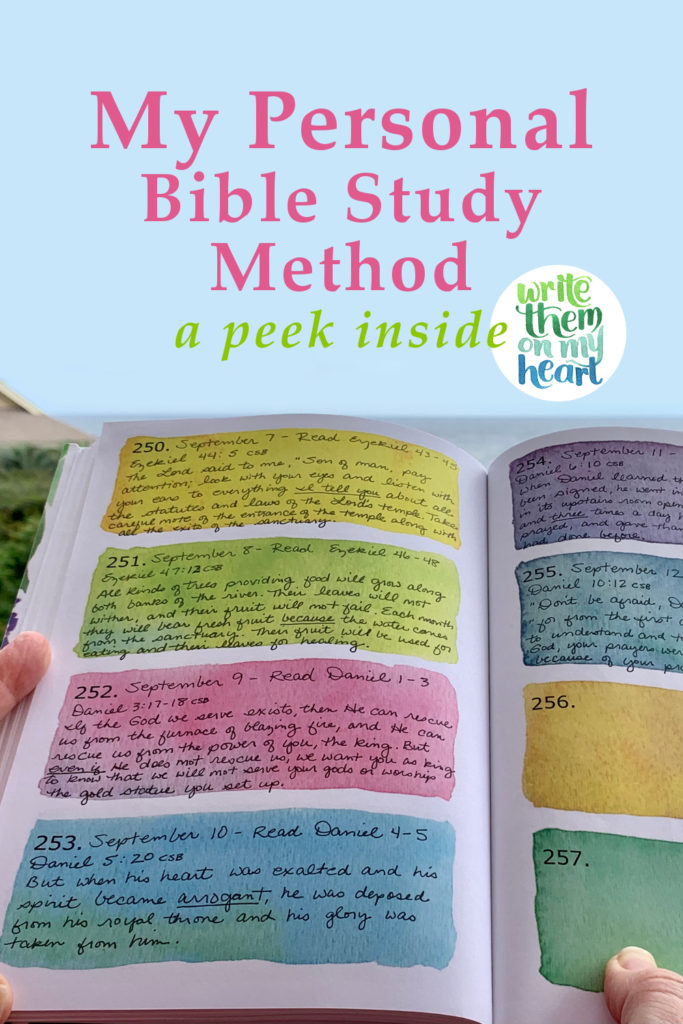 My Personal
Bible Study
Method
a peek inside
write
them
on my
heart
250. September 7 - Read Ezekiel 43-45
Ezekiel 44:5 CSB
The Lord said to me, "Son of man, pay
attention; look with your eyes and listen with
your ears to everything I tell you about all
the statutes and laws of the Lord's temple. Take
careful note of the entrance of the temple along with
all the exits of the sanctuary.
251. September 8 - Read Ezekiel 46-48
Ezekiel 47:12 CSB
All kinds of trees providing food will grow along
both banks of the river. Their leaves will not
wither, and their fruit will not fail. Each month
they will bear fresh fruit because the water comes
from the sanctuary. Their fruit will be used for
eating and their leaves for healing.
252. September 9 - Read Daniel 1-3
Daniel 3:17-18 CSB
If the God we serve exists, then He can rescue
us from the furnace of blazing fire, and He can
rescue us from the power of you, the king. But
even if He does not rescue us, we want you as king
to know that we will not serve your gods or worship
the gold statue you set up.
253. September 10 - Read Daniel 4-5
Daniel 5:20 CSB
But when his heart was exalted and his
spirit became arrogant, he was deposed
from his royal throne and his glory was
taken from him.
254. September 11 -
Daniel 6:10 CSB
When Daniel learned th
been signed, he went in
in its upstairs room open
and three times a day
prayed, and gave than
had done before.
255. September 12
Daniel 10:12 CSB
"Don't be afraid, Da
"for from the first d
to understand and t
God, your prayers wer
because of your pra
256.
257.